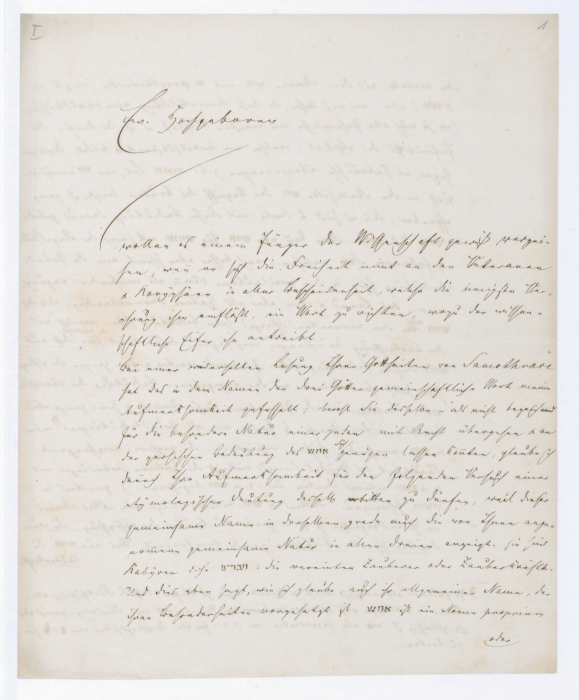 I
1
Ew. Hochgeboren
wollen es einem Jünger der Wissenschaft gewiß verzei-
hen, wenn er sich die Freiheit nimt an den Veteranen
u Koryphäen in aller Bescheidenheit, welche die innigste Ver-
ehrung ihm einflößt, ein Wort zu richten, wozu der wissen-
schaftliche Eifer ihn antreibt.
Bei einer wiederholten Lesung Ihrer Gottheiten von Samothrake
hat das in dem Namen der drei Götter gemeinschaftliche Wort meine
Aufmerksamkeit gefesselt; obwohl Sie dasselbe als nicht bezeichnend
für die besondere Natur eines jeden mit Recht übergehen u an
der persischen Bedeutung des אחש genügen lassen konten, glaube ich
dennoch Ihre Aufmerksamkeit für den folgenden Versuch einer
etymologischen Deutung desselb. erbitten zu dürfen, weil dieser
gemeinsame Name in derselben grade auch die von Ihnen ange-
nommene gemeinsame Natur in allen dreien anzeigt. Sie sind
Kabiren d. h. חברים: die vereinten Zauberer oder Zauberkräfte.
Und dies eben sagt, wie ich glaube, auch ihr allgemeiner Name, der
ihren Besonderheiten vorgesetzt ist. אחש ist ein Nomen proprium
oder